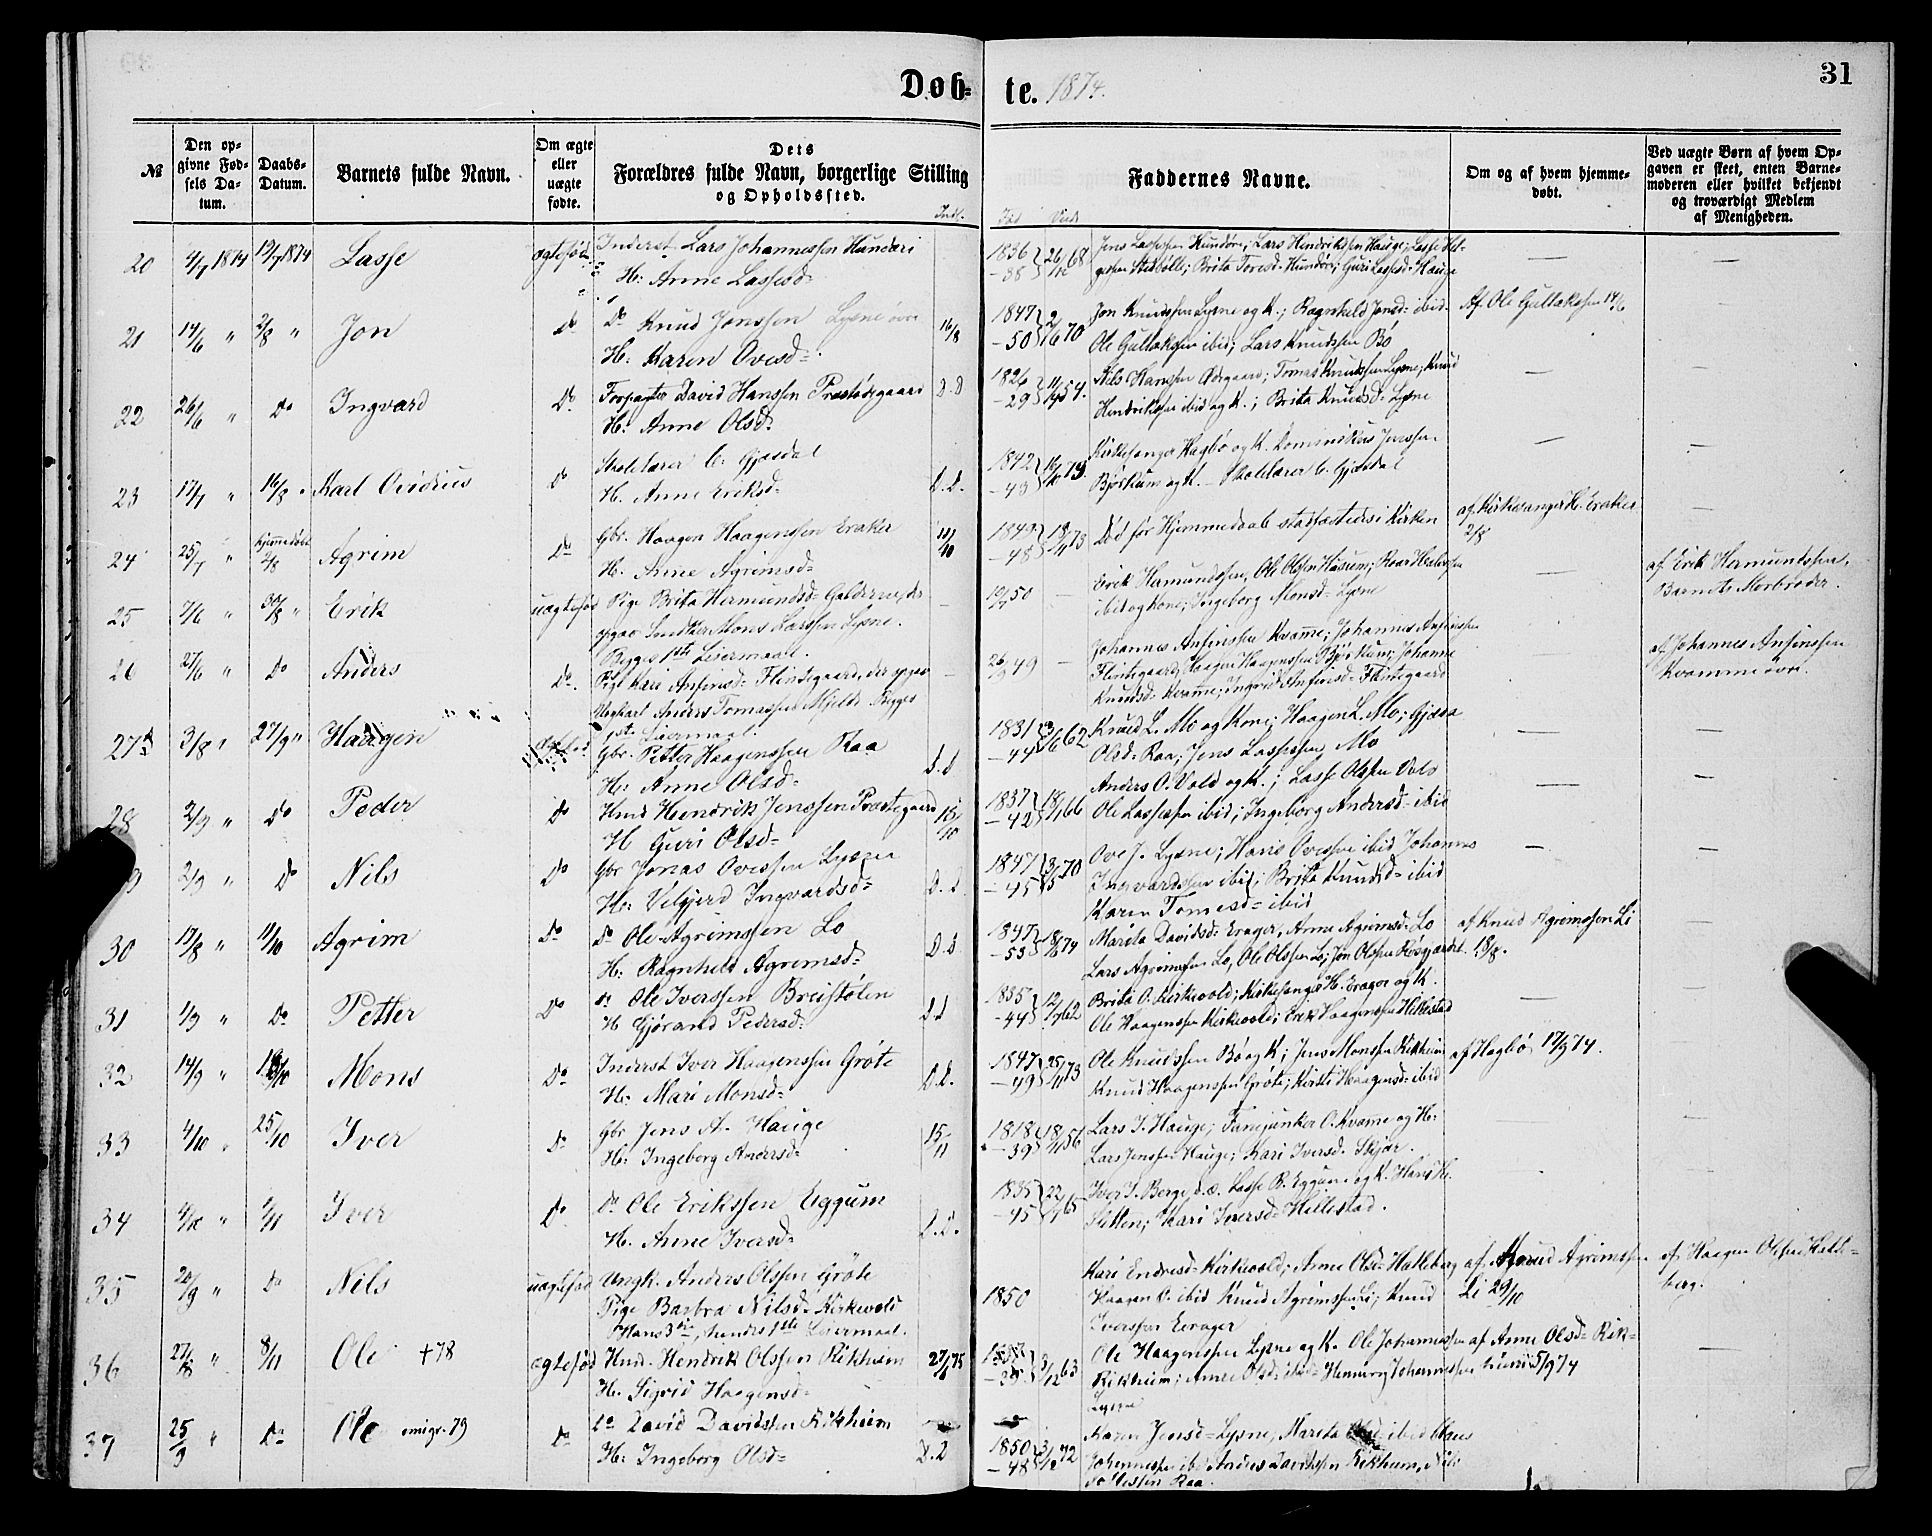 Døb-
te. 1874.
31
№
Den op-
givne Fød-
sels Da-
tum.
Daabs-
Datum.
Barnets fulde Navn.
Om ægte
eller
uægte
fødte.
Dets
Forældres fulde Navn, borgerlige Stilling
og Opholdssted.
Faddernes Navne.
Om og af hvem hjemme-
døbt.
Ved uægte Børn af hvem Op-
gaven er skeet, enten Barne-
moderen eller hvilket bekjendt
og troværdigt Medlem
af Menigheden.
20 4/7 1874 12/7 1874 Lasse ægtefød Inderst Lars Johannessen Hundøri
H: Anne Lassesd=
1836 - 38 26/12 68
Jens Lassessen Hundøri; Lars Hendrikssen Hauge; Lasse Hel-
gessen Stedølle; Brita Toresd= Hundøri; Guri Lassesd= Hauge
21 14/6 " 2/8 " Jon Do Do Knud Jonssen Lysne øvre
H: Karen Ovesd= 16/8
1847 - 50 2/6 70
Jon Knudssen Lysne og K.; Ragnhild Jonsd= ibid.
Ole Gullakssen ibid; Lars Knudssen Bø
Af Ole Gullakssen 14/6
22 26/6 " Do Ingvard Do Forpagter David Hanssen Præstegaard D.D
H: Anne Olsd=
1826 - 29 54.
Nils Hanssen Ødegaard; Tomas Knudssen Lysne; Knud
Hendrikssen ibid og K.; Brita Knudsd= Lysne
23 17/7 " 16/8 " Karl Ovidius Do Skolelærer C. Gjesdal
H. Anne Eriksd= D.D.
1842 - 43 73.
Kirkesanger Hagbø og K. Dominikus Jenssen
Bjørkum og K. - Skolelærer C. Gjesdal
24 25/7 " hjemmedøbt 2/8 Agrim Do Gbr. Haagen Haagenssen Eraker
H. Anne Agrimsd= 11/10
1849 - 48 18/4 73
Død før Hjemmedaab stadfæstedes i Kirken
af Kirkesanger H. Eraker
2/8
25 7/6 " 30/8 " Erik uægtefød Pige Brita Hermundsd= Galdernester
opgav Snedker Mons Larssen Lysne.
Begges 1ste Leiermaal.
19/7 50
Erik Hermundssen, Ole Olssen Husum;
ibid og Kone; Ingeborg Monsd= Lysne
af Erik Hermundssen,
Barnets Morbroder.
26 27/6 " Do Anders Do. Pige Kari Ansinsd= Flintegaard, der opgav
Ungkarl Anders Tomassen Mjelde Begges
1ste Leiermaal.
26/9 49
Johannes Ansinssen Kvamme; Johannes Ansinssen
Flintegaard; Haagen Haagenssen Bjørkum; Johanne
Knudsd= Kvamme; Ingrid Ansinsd= Flintegaard
af Johannes Ansinssen
Kvamme øvre.
27 3/8 " 27/9 " Haagen ægtefød Gbr. Petter Haagenssen Raa
H: Anne Olsd= D.D
1831 - 44 3/6 62
Knud L. Mo og Kone; Haagen L. Mo; Gjøa
Olsd= Raa; Jens Lassessen Mo
28 2/9 " Do Peder Do Hmd Hendrik Jenssen Præstegaard
H Guri Olsd= 15/10
1837 - 42 18/1 66
Anders O. Vold og K.; Lasse Olssen Vold
Ole Lassessen ibid; Ingeborg Andersd= ibid
2/9 " Do Nils Do Gbr Jonas Ovessen Lysne
H: Velgjerd Ingvardsd= D.D.
1847 - 45 3/5 70
Ove J. Lysne; Hans Ovessen ibid Johannes
Ingvardssen ibid; Brita Knudsd= ibid
Karen Tomesd= ibid
30 17/8 " 11/10 Agrim Do Do Ole Agrimssen Lo
H: Ragnhild Agrimsd= D.D
1847 - 53 18/6 74
Marita Davidsd= Erager, Anne Agrimsd= Lo
Lars Agrimssen Lo, Ole Olssen Lo; Jon Olssen
af Knud Agrimssen Li
18/8.
31 1/9 " Do Petter Do Do Ole Iverssen Breistølen
H Gjørand Pedersd= D.D
1835 - 44 12/7 62
Brita O. Kirkevold; Kirkesanger H. Erager og K.
Ole Haagenssen Kirkevold; Erik Haagenssen Hellestad
32 14/9 " 18/10 Mons Do Inderst Iver Haagenssen Grøte
H: Mari Monsd= D.D.
1847 - 49 25/11 73
Ole Knudssen Bø og K; Jens Monssen Rikheim
Knud Haagenssen Grøte; Kirsti Haagensd= ibid
af Hagbø 17/9 74.
33 4/10 " 25/10 Iver Do Gbr Jens A. Hauge
H: Ingeborg Andersd= 15/11
1818 - 39 18/11 56
Lars J. Hauge; Fanejunker O. Kvamme og H:
Lars Jenssen Hauge; Kari Iversd. Skjær.
34 " 1/11 Iver Do Do Ole Erikssen Eggum
H. Anne Iversd= D.D.
1835 - 45 65
Iver I. Berge d.æ. Lasse B. Eggum og K. Hans H.
Sletten; Kari Iversd= Hellestad.
35 20/9 " Do Nils uægtefød Ungk. Anders Olssen Grøte
Pige Barbra Nilsd= Kirkevold
Hans 3die, hendes 1ste Leiermaal.
1850
Kari Endresd= Kirkevold; Anne Olsd= Halleberg
Haagen O. ibid Knud Agrimssen Li; Knud
Iverssen Erager
af Knud Agrimssen
Li 29/10
af Haagen Olssen Halle-
berg.
36 27/8 " 8/11 Ole +78 ægtefød Hmd. Hendrik Olssen Rikheim 27/6 75
H: Sigrid Haagensd=
- 39 3/12 63
Ole Haagenssen Lysne og K. Ole Johannessen
Rikheim; Anne Olsd= ibid= Henning Johannessen
Lysne
af Anne Olsd= Rik-
heim 5/9 74
37 25/9 " Do Ole emigr. 79 Do Do David Davidssen Rikheim
H: Ingeborg Olsd= D.D
1850 - 48 3/12 72
Karen Jensd= Lysne, Marita ibid Claus
Johannessen ibid Anders Davidssen Rikheim, Nils
Raa.